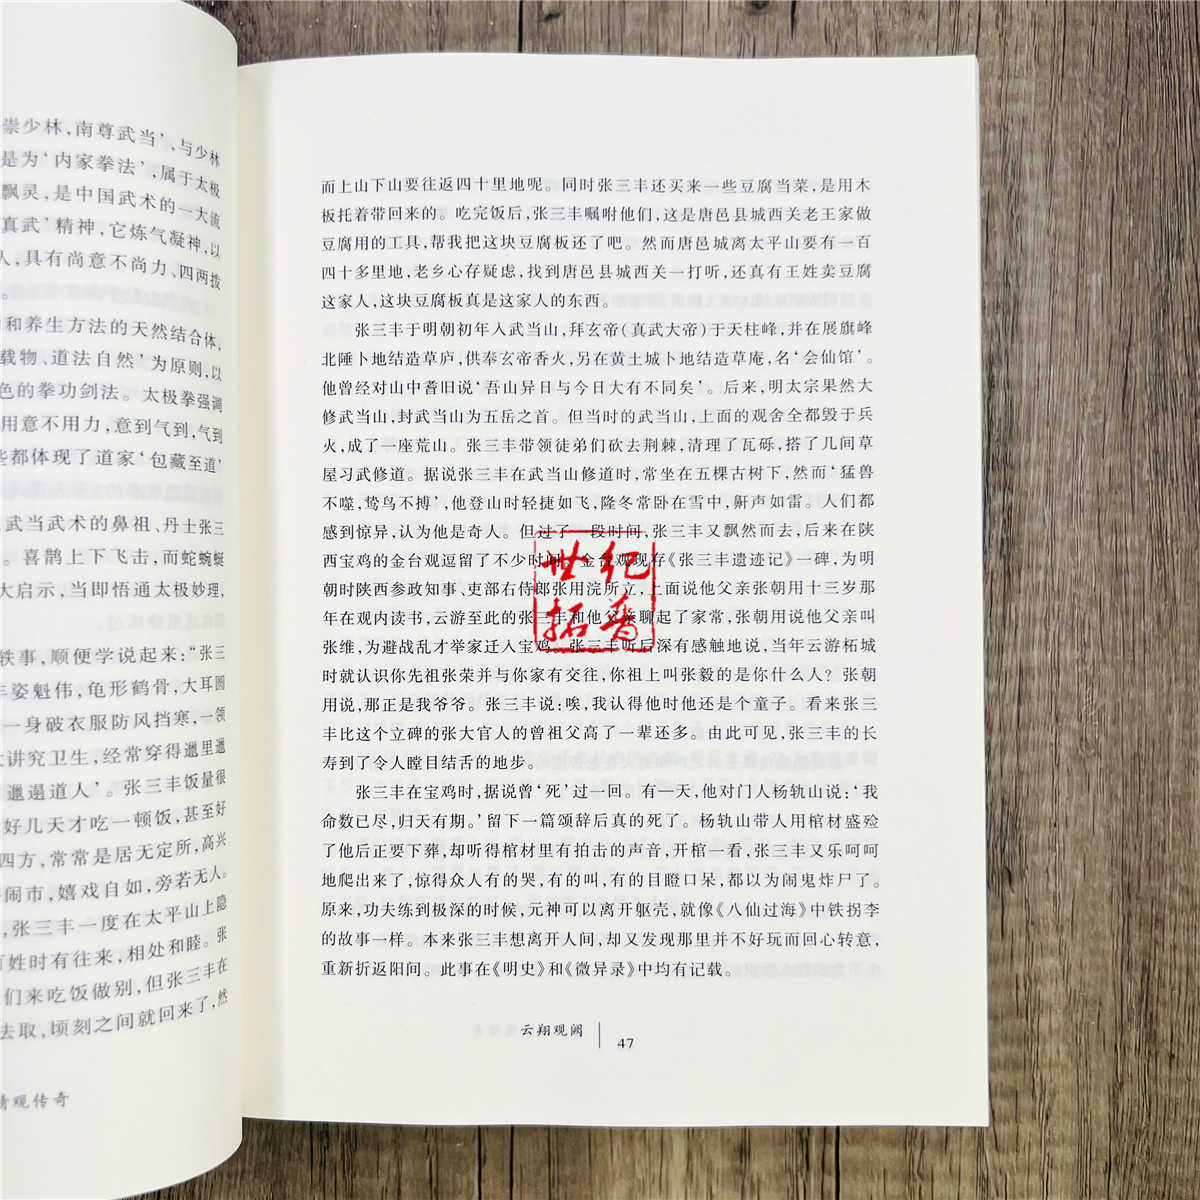 崇少林，南尊武当’，与少林
是为‘内家拳法’，属于太极
飘灵，是中国武术的一大流
真武’精神，它炼气凝神，以
人，具有尚意不尚力、四两拨
。
和养生方法的天然结合体，
载物、道法自然’为原则，以
色的拳功剑法。太极拳强调
用意不用力，意到气到，气到
些都体现了道家‘包藏至道’
武当武术的鼻祖、丹士张三
。喜鹊上下飞击，而蛇蜿蜒
大启示，当即悟通太极妙理，
轶事，顺便学说起来：“张三
丰姿魁伟，龟形鹤骨，大耳圆
一身破衣服防风挡寒，一领
讲究卫生，经常穿得邋里邋
邋遢道人’。张三丰饭量很
好几天才吃一顿饭，甚至好
四方，常常是居无定所，高兴
闹市，嬉戏自如，旁若无人。
，张三丰一度在太平山上隐
百姓时有往来，相处和睦。张
们来吃饭做别，但张三丰在
去取，顷刻之间就回来了，然
观传奇
而上山下山要往返四十里地呢。同时张三丰还买来一些豆腐当菜，是用木
板托着带回来的。吃完饭后，张三丰嘱咐他们，这是唐邑县城西关老王家做
豆腐用的工具，帮我把这块豆腐板还了吧。然而唐邑城离太平山要有一百
四十多里地，老乡心存疑虑，找到唐邑县城西关一打听，还真有王姓卖豆腐
这家人，这块豆腐板真是这家人的东西。
张三丰于明朝初年入武当山，拜玄帝（真武大帝）于天柱峰，并在展旗峰
北陲卜地结造草庐，供奉玄帝香火，另在黄土城卜地结造草庵，名‘会仙馆’。
他曾经对山中耆旧说‘吾山异日与今日大有不同矣’。后来，明太宗果然大
修武当山，封武当山为五岳之首。但当时的武当山，上面的观舍全都毁于兵
火，成了一座荒山。张三丰带领徒弟们砍去荆棘，清理了瓦砾，搭了几间草
屋习武修道。据说张三丰在武当山修道时，常坐在五棵古树下，然而‘猛兽
不噬，鸷鸟不搏’，他登山时轻捷如飞，隆冬常卧在雪中，鼾声如雷。人们都
感到惊异，认为他是奇人。但过了一段时间，张三丰又飘然而去，后来在陕
西宝鸡的金台观逗留了不少时间。金台观现存《张三丰遗迹记》一碑，为明
朝时陕西参政知事、吏部右侍郎张用浣所立，上面说他父亲张朝用十三岁那
年在观内读书，云游至此的张三丰和他父亲聊起了家常，张朝用说他父亲叫
张维，为避战乱才举家迁入宝鸡。张三丰听后深有感触地说，当年云游柘城
时就认识你先祖张荣并与你家有交往，你祖上叫张毅的是你什么人？张朝
用说，那正是我爷爷。张三丰说：唉，我认得他时他还是个童子。看来张三
丰比这个立碑的张大官人的曾祖父高了一辈还多。由此可见，张三丰的长
寿到了令人瞠目结舌的地步。
张三丰在宝鸡时，据说曾‘死’过一回。有一天，他对门人杨轨山说：‘我
命数已尽，归天有期。’留下一篇颂辞后真的死了。杨轨山带人用棺材盛殓
了他后正要下葬，却听得棺材里有拍击的声音，开棺一看，张三丰又乐呵呵
地爬出来了，惊得众人有的哭，有的叫，有的目瞪口呆，都以为闹鬼炸尸了。
原来，功夫练到极深的时候，元神可以离开躯壳，就像《八仙过海》中铁拐李
的故事一样。本来张三丰想离开人间，却又发现那里并不好玩而回心转意，
重新折返阳间。此事在《明史》和《微异录》中均有记载。
世纪
拓普
云翔观阙
47